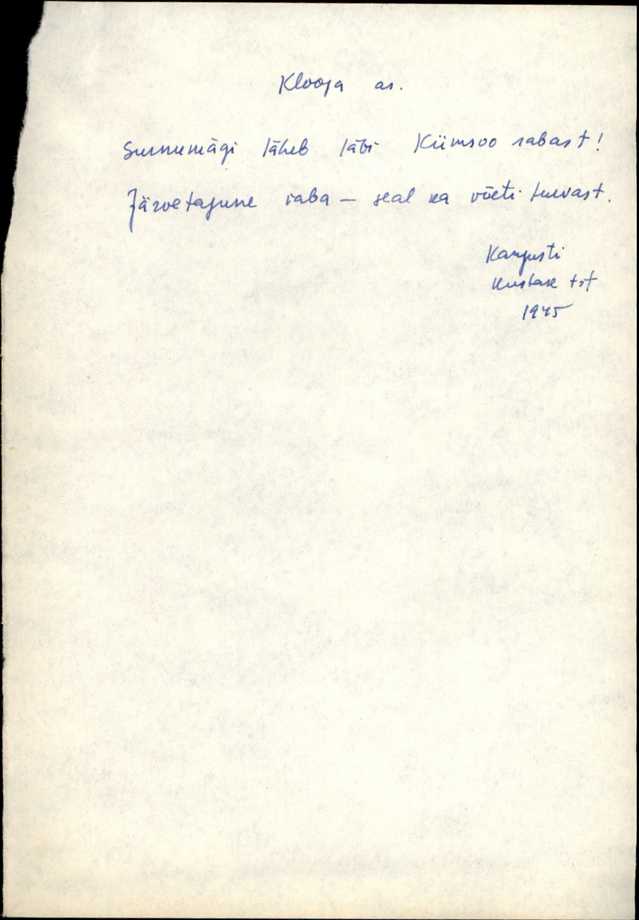 Klooga as.
Surnumägi läheb läbi Kiimsoo rabast!
Järvetagune raba — seal ka võeti turvast.
Kangusti
Kustase tst
1975